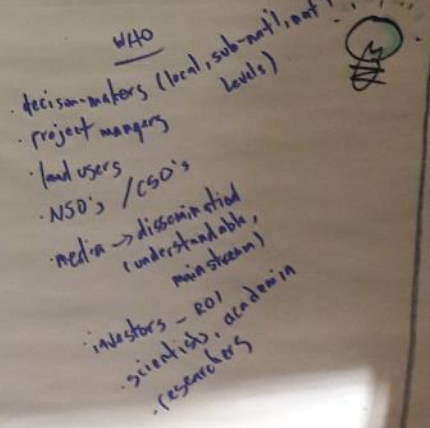 WHO
· decison-makers (local, sub-nat'l, nat'l
levels)
· project mangers
· land users
· NSO's / CSO's
· media → dissemination
(understandable,
mainstream)
· investors - ROI
· scientists, academia
· researchers